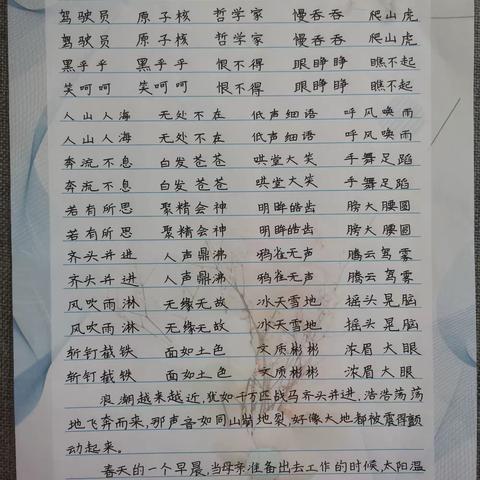 驾驶员 原子核 哲学家 慢吞吞 爬山虎
驾驶员 原子核 哲学家 慢吞吞 爬山虎
黑乎乎 黑乎乎 恨不得 眼睁睁 瞧不起
笑呵呵 笑呵呵 恨不得 眼睁睁 瞧不起
人山人海 无处不在 低声细语 呼风唤雨
人山人海 无处不在 低声细语 呼风唤雨
奔流不息 白发苍苍 哄堂大笑 手舞足蹈
奔流不息 白发苍苍 哄堂大笑 手舞足蹈
若有所思 聚精会神 明眸皓齿 膀大腰圆
若有所思 聚精会神 明眸皓齿 膀大腰圆
齐头并进 人声鼎沸 鸦雀无声 腾云驾雾
齐头并进 人声鼎沸 鸦雀无声 腾云驾雾
风吹雨淋 无缘无故 冰天雪地 摇头晃脑
风吹雨淋 无缘无故 冰天雪地 摇头晃脑
斩钉截铁 面如土色 文质彬彬 浓眉大眼
斩钉截铁 面如土色 文质彬彬 浓眉大眼
浪潮越来越近,犹如千万匹战马齐头并进,浩浩荡荡
地飞奔而来,那声音如同山崩地裂,好像大地都被震得颤
动起来。
春天的一个早晨,当母亲准备出去工作的时候,太阳温